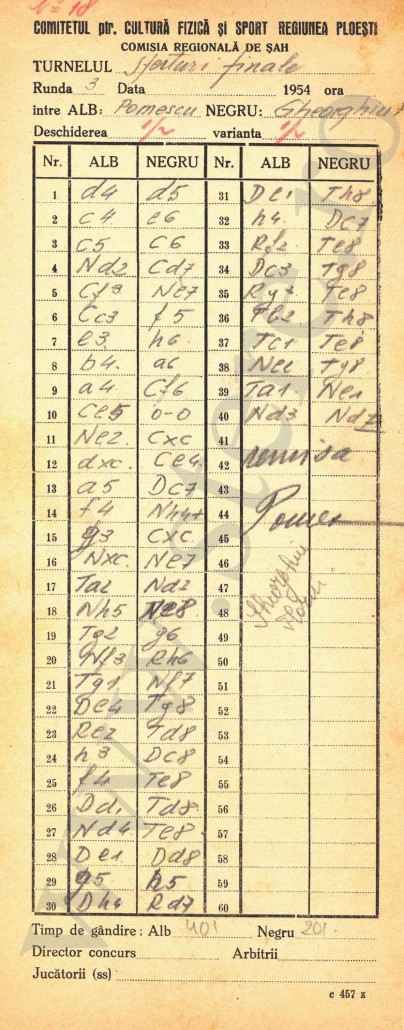 No 18
COMITETUL ptr. CULTURĂ FIZICĂ și SPORT REGIUNEA PLOEȘTI
COMISIA REGIONALĂ DE ȘAH
TURNELUL sferturi finale
Runda 3 Data 1954 ora
intre ALB: Pomescu NEGRU: Gheorghiu
Deschiderea 1/2 varianta 1/2
Nr. ALB NEGRU Nr. ALB NEGRU
1 d4 d5 31 De1 Th8
2 c4 e6 32 h4 Dc7
3 c5 c6 33 Rf2 Te8
4 Nd2 Cd7 34 Dc3 Tg8
5 Cf3 Ne7 35 Rg2 Te8
6 Cc3 f5 36 Tb2 Th8
7 e3 h6 37 Tc1 Te8
8 b4 a6 38 Ne2 Tg8
9 a4 Cf6 39 Ta1 Ne8
10 Ce5 0-0 40 Nd3 Nd7
11 Ne2 CxC 41
12 dxc Ce4 42 remisa
13 a5 Dc7 43
14 f4 Nh4+ 44
15 g3 CxC 45
16 NxC Ne7 46
17 Ta2 Nd7 47
18 Nh5 Ne8 48
19 Tg2 g6 49
20 Nf3 Rh6 50
21 Tg1 Nf7 51
22 De4 Tg8 52
23 Re2 Td8 53
24 h3 Dc8 54
25 f4 Te8 55
26 Dd1 Td8 56
27 Nd4 Te8 57
28 De1 Dd8 58
29 g5 h5 59
30 Dh4 Rd7 60
Timp de gândire: Alb 401 Negru 201
Director concurs Arbitrii
Jucătorii (ss)
c 457 z